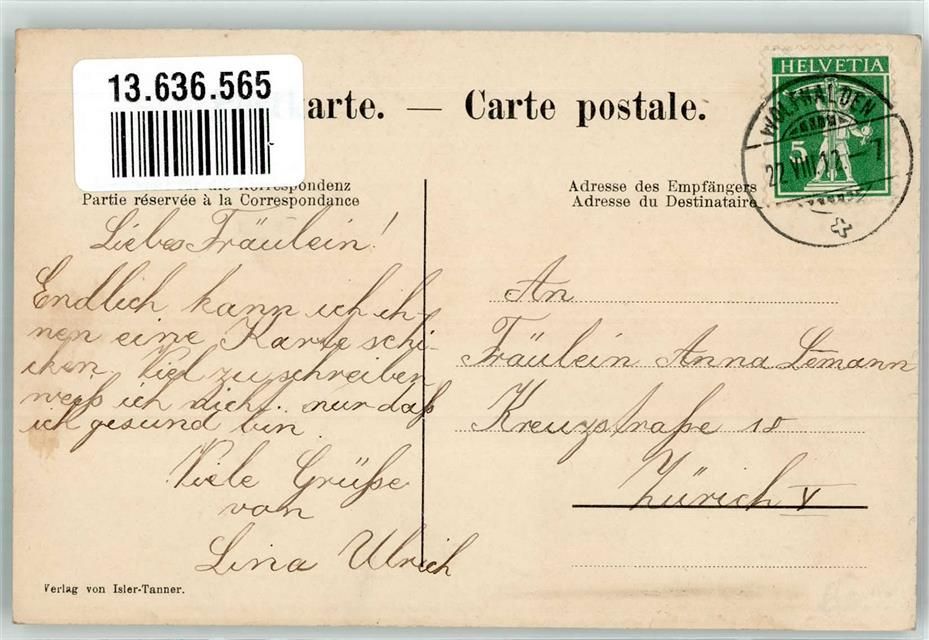 13.636.565
karte. — Carte postale.
HELVETIA
5
WOLFHALDEN
22.VIII.12.–7
Korrespondenz
Partie réservée à la Correspondance
Adresse des Empfängers
Adresse du Destinataire
Liebes Fräulein!
Endlich kann ich ih-
nen eine Karte schi-
cken. Viel zu schreiben
weiß ich nicht.. nur daß
ich gesund bin.
Viele Grüße
von
Lina Ulrich
An
Fräulein Anna Lemann
Kreuzstraße 10
Zürich V
Verlag von Isler-Tanner.